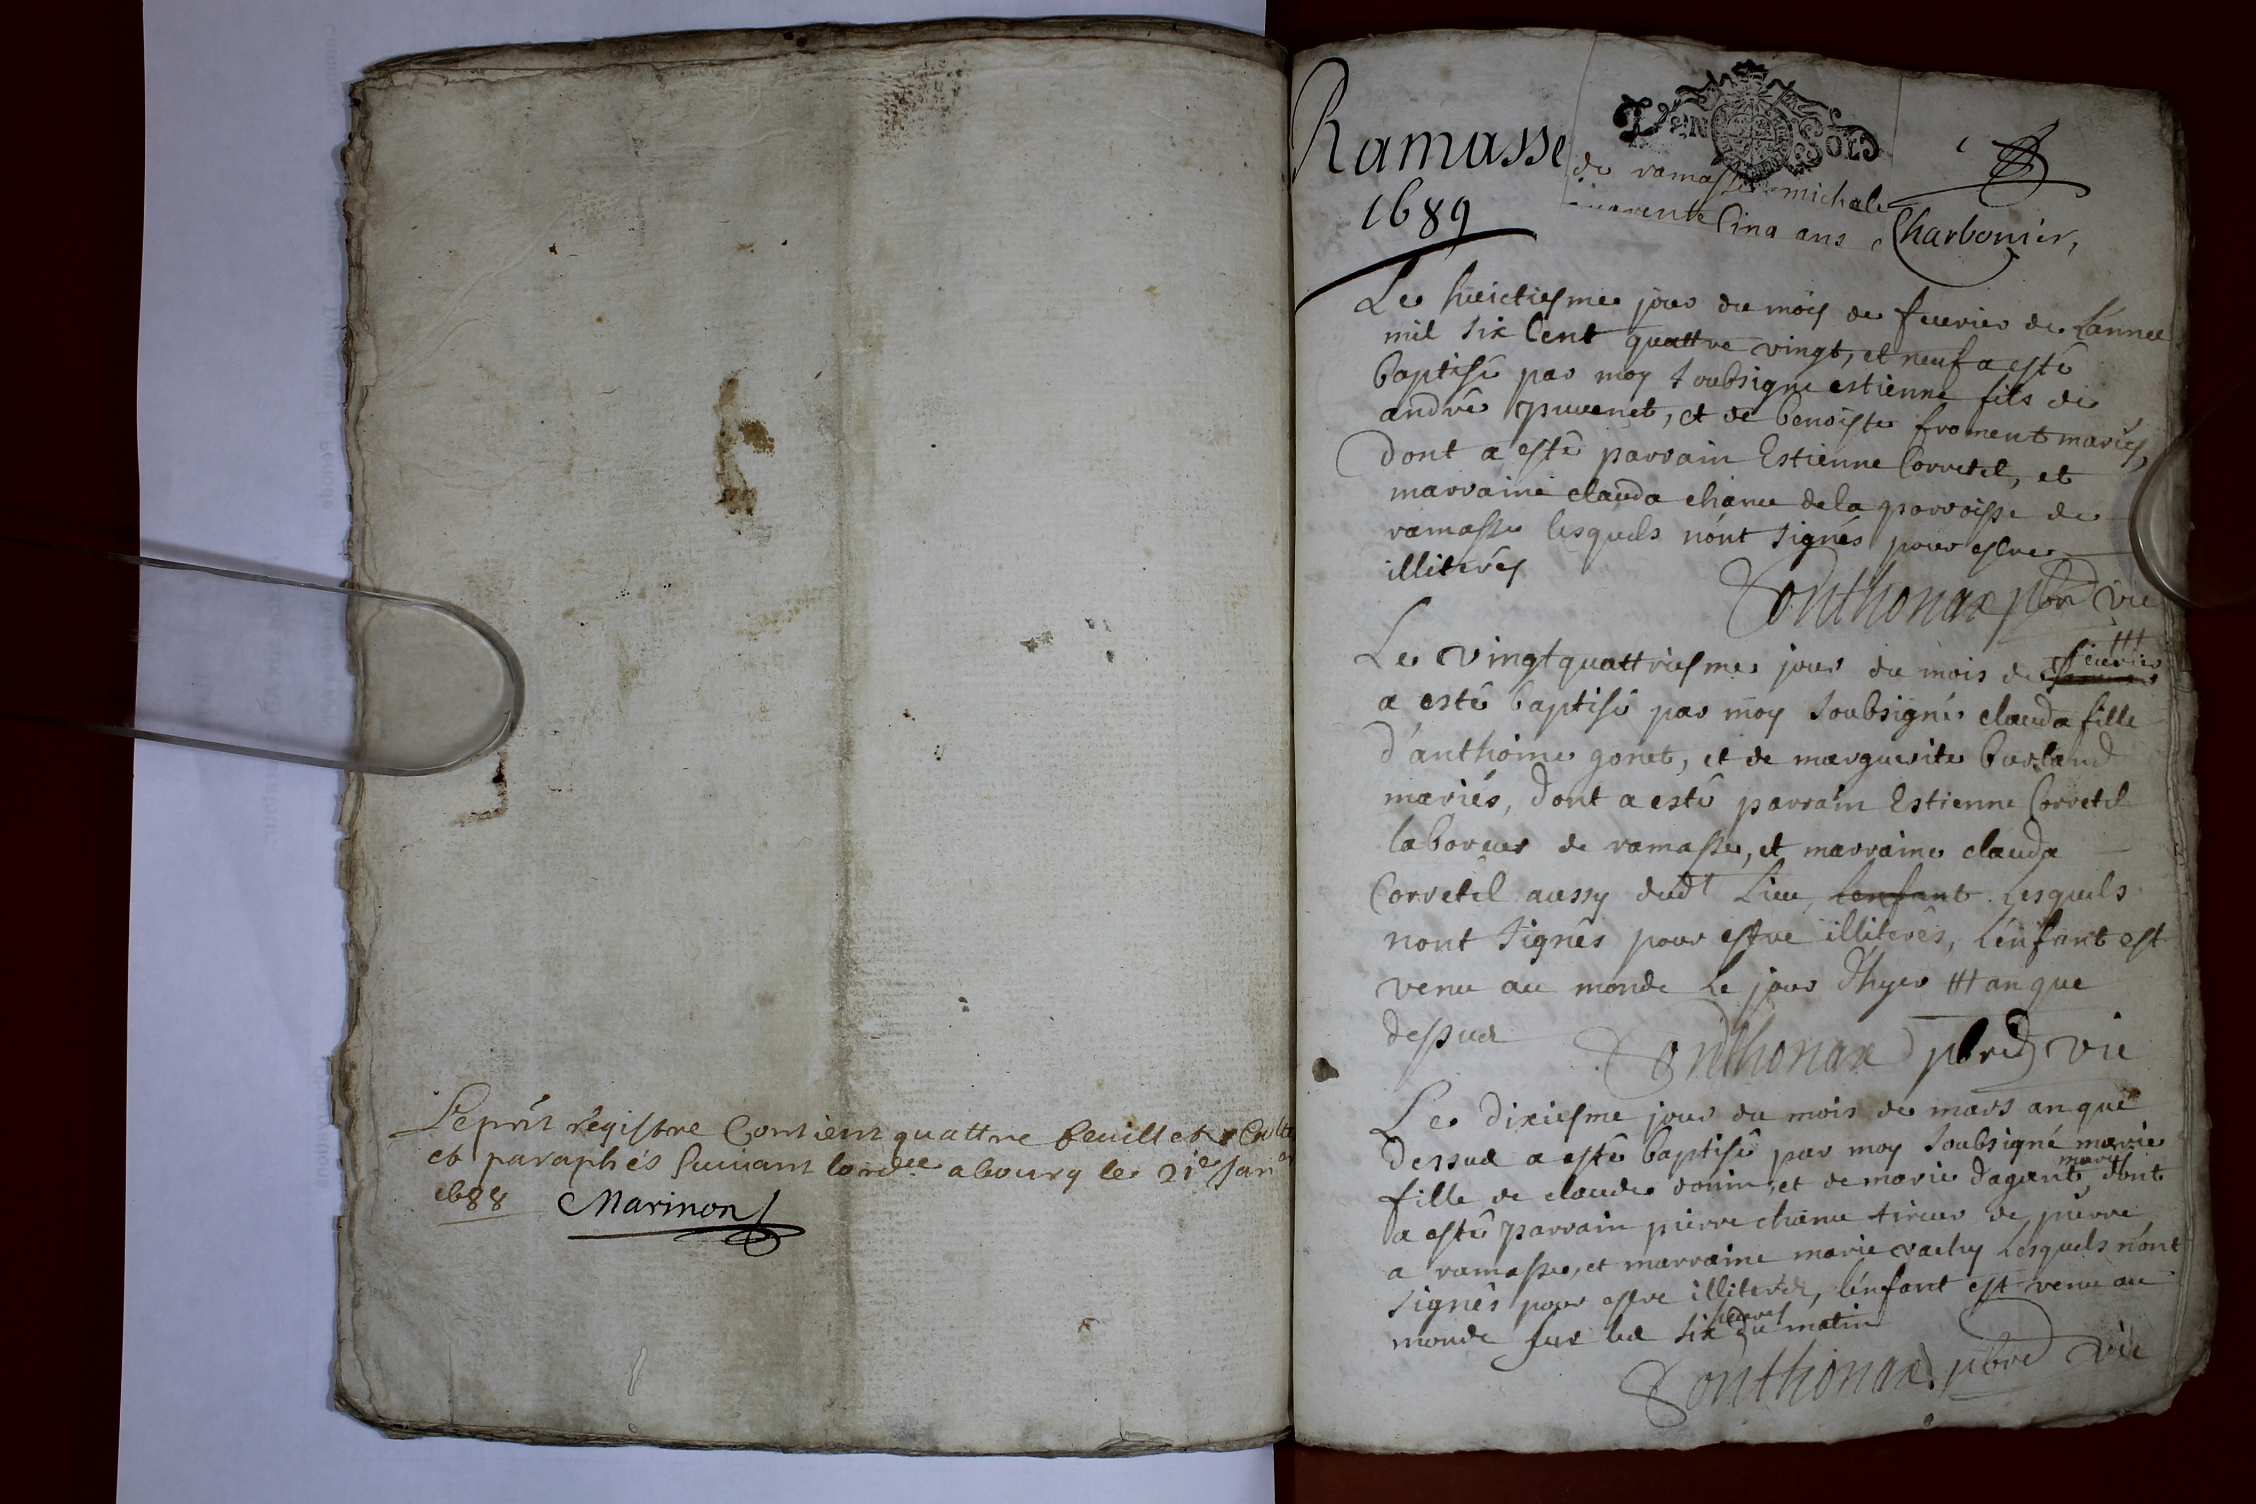 Le pnt régistre Contient quattre feuillets Cottés
et paraphés suivant lordce abourg le 21e Janer
1688 Marinon
Ramasse
1689
de ramasse michale
quarente Cinq ans Charbonier,
Le huictiesme jour du mois de feuvrier de L'annee
mil six Cent quattre vingt, et neuf a esté
baptisé par moy soubsigne estienne fils de
andré puvenet, et de benoiste froment mariés,
dont a esté parrain Estienne Corretel, et
marraine clauda chanu de la parroisse de
ramasse lesquels n'ont signés pour estre
illiterés
Sonthonax pbre vic
Le vingtquattriesme jour du mois de feuvrier
a esté baptisé par moy soubsigné clauda fille
d'anthoine gonet, et de marguerite burland
mariés, dont a esté parrain Estienne Corretel
laboreur de ramasse, et marraine clauda
Corretel aussy dudt Lieu, lenfant Lesquels
nont signés pour estre illiterés, L'enfant est
venu au monde Le jour d'hyer an que
dessus
Sonthonax pbre vic
Le dixiesme jour du mois de mars an que
dessus a esté baptisé par moy soubsigné marie
fille de claude donin, et de marie dagant mariés dont
a esté parrain pierre chanu tireur de pierre
a ramasse, et marraine marie vachy Lesquels n'ont
signés pour estre illiterés, l'enfant est venu au
monde sur les six heures du matin
Sonthonax pbre vic